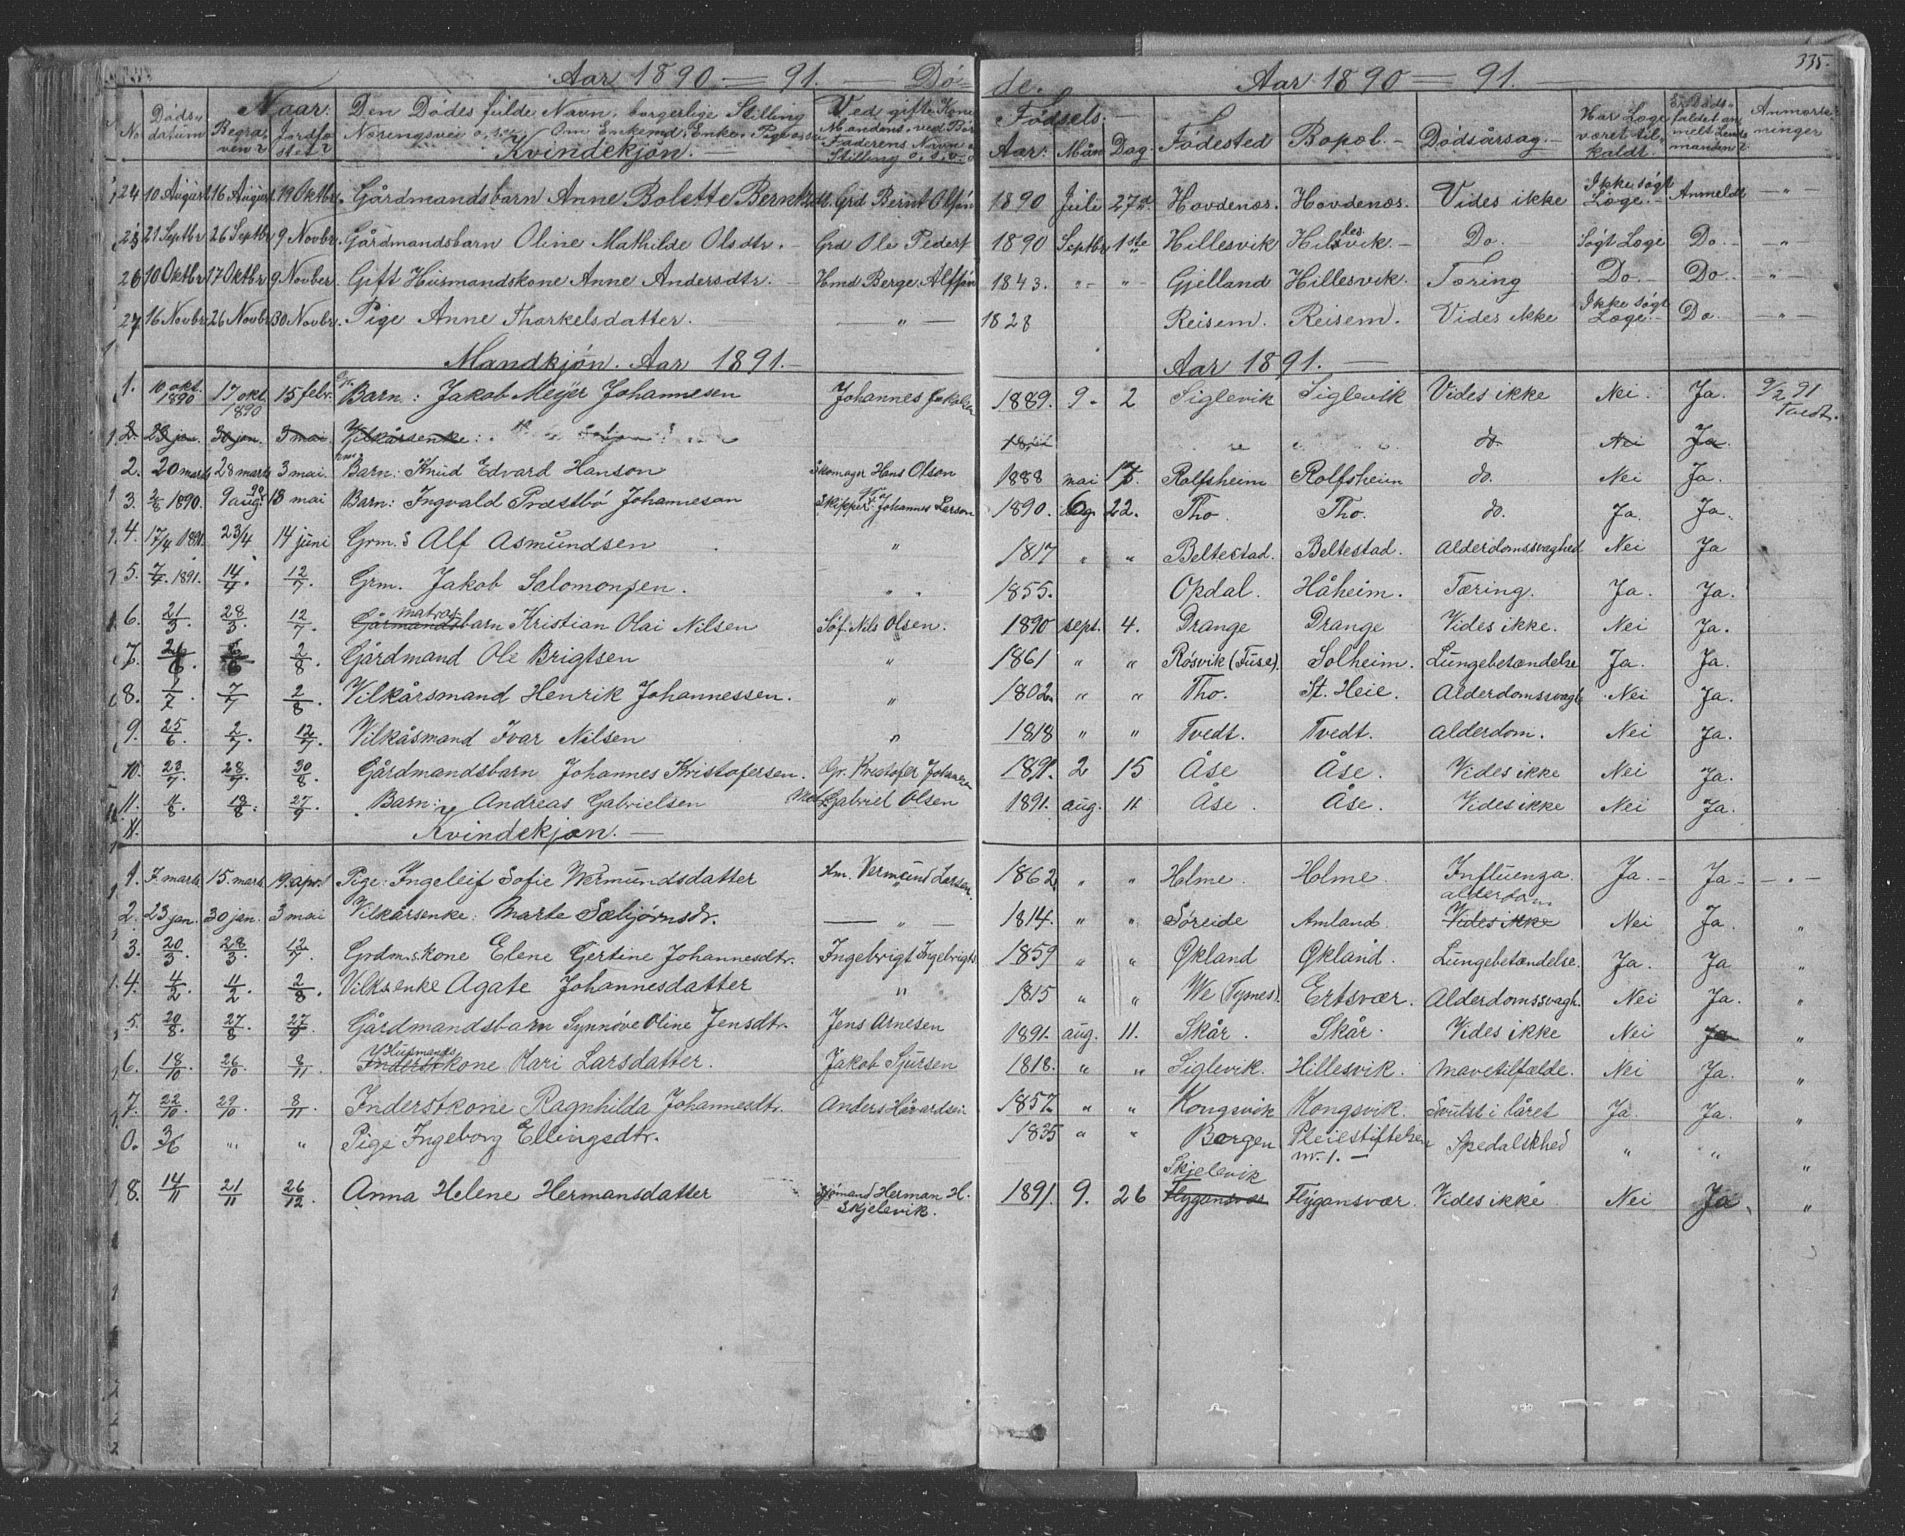 335.
Aar 1890 = 91. — Dö-
de. Aar 1890 = 91.
No. Döds-datum Naar: Begraven? Jordfæstet? Den Dödes fulde Navn, borgerlige Stilling Næringsvei o.s.v. Om Enkemd, Enke, Pige Ved gifte Koner Mandens, ved Börn Faderens Navn Stilling o.s.v. Födsels- Aar. Mån Dag. Födested Bopæl.- Dödsårsag.- Har Læge været tilkaldt. Er Dödsfaldet anmelt Lensmanden? Anmærkninger
Kvindekjön.
24 10 August 16 August 19 Oktbr. Gårdmandsbarn Anne Bolette Berntsdtr. Grd Bernt Olsön 1890 Juli 27d. Hovdenæs. Hovdenæs. Vides ikke Ikke søgt Læge.- Anmeldt — " —
25 21 Septbr 26 Septbr 9 Novbr. Gårdmandsbarn Oline Mathilde Olsdtr. - Grd Ole Peders 1890 Septbr 1ste Hillesvik Hillesvik - Do. Søgt Læge Do. - "
26 10 Oktbr 17 Oktbr 9 Novber. Gift Husmandskone Anne Andersdtr. - Hmd Berge Alfsön 1843. " - " - Gjelland Hillesvik. Tæring Do - Do. - " -
27. 16 Novbr 26 Novbr 30 Novbr. Pige Anne Tharkelsdatter. — " — 1828 Reisem. Reisem. Vides ikke Ikke Søgt Læge.- Do. — " —
Mandkjön. Aar 1891. - Aar 1891. —
1. 10 okt. 1890 17 okt. 1890 15 febr. Barn: Jakob Meyer Johannesen Johannes Jakobsen 1889. 9. 2 Siglevik Siglevik Vides ikke Nei. Ja. 9/2 91 Tvedt.
2. 23 jan. 30 jan. 3 mai. Vilkårsenke: do. Nei Ja
2. 20 marts 28 marts 3 mai. Barn: Knud Edvard Hanson Skomager Hans Olson 1888 mai 17. Rolfsheim Rolfsheim do. Nei Ja.
3. 2/8 1890. 9 aug. 90 18 mai Barn: Ingvald Præstbö Johanneson Skipper Johannes Larson 1890. 6 22. Tho. Tho. do. Ja. Ja.
4. 17/4 1891. 23/4 14 juni Grm. Alf Asmundsen " 1817 " " Beltestad. Beltestad. Alderdomssvaghed Nei Ja
5. 7/4 1891. 14/4. 12/7. Grm. Jakob Salomonsen. " 1855. Opdal. Håheim. Tæring. Ja. Ja.
6. 21/3 28/3. 12/7. Gårmandsbarn matros Kristian Olai Nilsen Söf. Nils Olsen. 1890 sept. 4. Drange Drange Vides ikke. Nei Ja.
7. 2/8 Gårdmand Ole Brigtsen " 1861 " " Røsvik (Fuse). Solheim. Lungebetændelse Ja. Ja.
8. 1/7. 7/7 2/8 Vilkårsmand Henrik Johannessen. " 1802. " " Tho. St. Heie. Alderdomssvagh. Nei Ja.
9. 25/6. 2/7. 12/7. Vilkåsmand Ivar Nilsen " 1818 " " Tvedt. Tvedt. Alderdom. Nei Ja.
10. 23/7. 28/7. 30/8. Gårdmandsbarn Johannes Kristofersen. Gr. Kristofer Johannesen 1891. 2 15 Åse Åse. Vides ikke Nei Ja.
11. 11/8. 18/8. 27/9 Barn: Andreas Gabrielsen Gabriel Olsen 1891. aug. 11 Åse. Åse. Vides ikke Nei Ja.
Kvindekjøn. —
1. 7. marts 15. marts 19. april Pige: Ingeleif Sofie Wermundsdatter Hm. Vermund Larsen. 1862 " " Holme. Holme. Influenza Ja. - Ja - - " -
2. 23 jan. 30 jan. 3 mai Vilkårsenke: Marte Sæbjørnsdr. — " — 1814. " " Söreide Amland. alderdom Vides ikke Nei Ja. "
3. 20/3 28/3. 12/7 Grdm.skone Elene Gjertine Johannesdtr. Ingebrigt Ingebrigts. 1859 " " Økland Økland. Lungebetændelse. Ja. Ja "
4. 4/2 4/2 2/8. Vilkrsenke Agate Johannesdatter " 1815 " " We (Tysnes). Ertsvær. Alderdomssvagh. Nei Ja. "
5. 20/8 27/8. 27/9 Gårdmandsbarn Synnöve Oline Jensdtr. Jens Arnesen 1891. aug. 11. Skår. Skår. Vides ikke Nei Ja "
6. 18/10 26/10 8/11. Inderstkone Husmands Kari Larsdatter. Jakob Sjursen 1818. " " Siglevik. Hillesvik. Mavetilfælde. Nei Ja. "
7. 22/10 29/10. 8/11. Inderstkone Ragnhilda Johannesdtr. Anders Håvardsen. 1857 " " Kongsvik Kongsvik. Svulst i låret Ja. Ja. "
0. 3/6 " " Pige Ingeborg Ellingsdtr. 1835 " " Bergen Pleiestiftelsen nr. 1. - Spedalskhed " " "
8. 14/11 21/11 26/12. Anna Helene Hermansdatter Sjömand Herman H. Skjelevik. 1891. 9. 26 Skjelevik Flygansvær Flygansvær. Vides ikke Nei Ja "